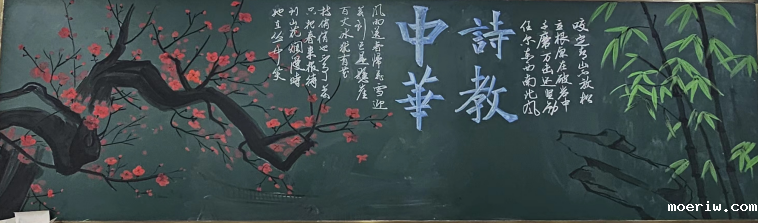 咬定青山不放松
立根原在破岩中
千磨万击还坚劲
任尔东西南北风
中華
詩教
風雨送春歸飛雪迎
春到已是懸崖
百丈冰犹有花
枝俏俏也不争春
只把春来报待
到山花爛漫時
她在丛中笑
moeriw.com